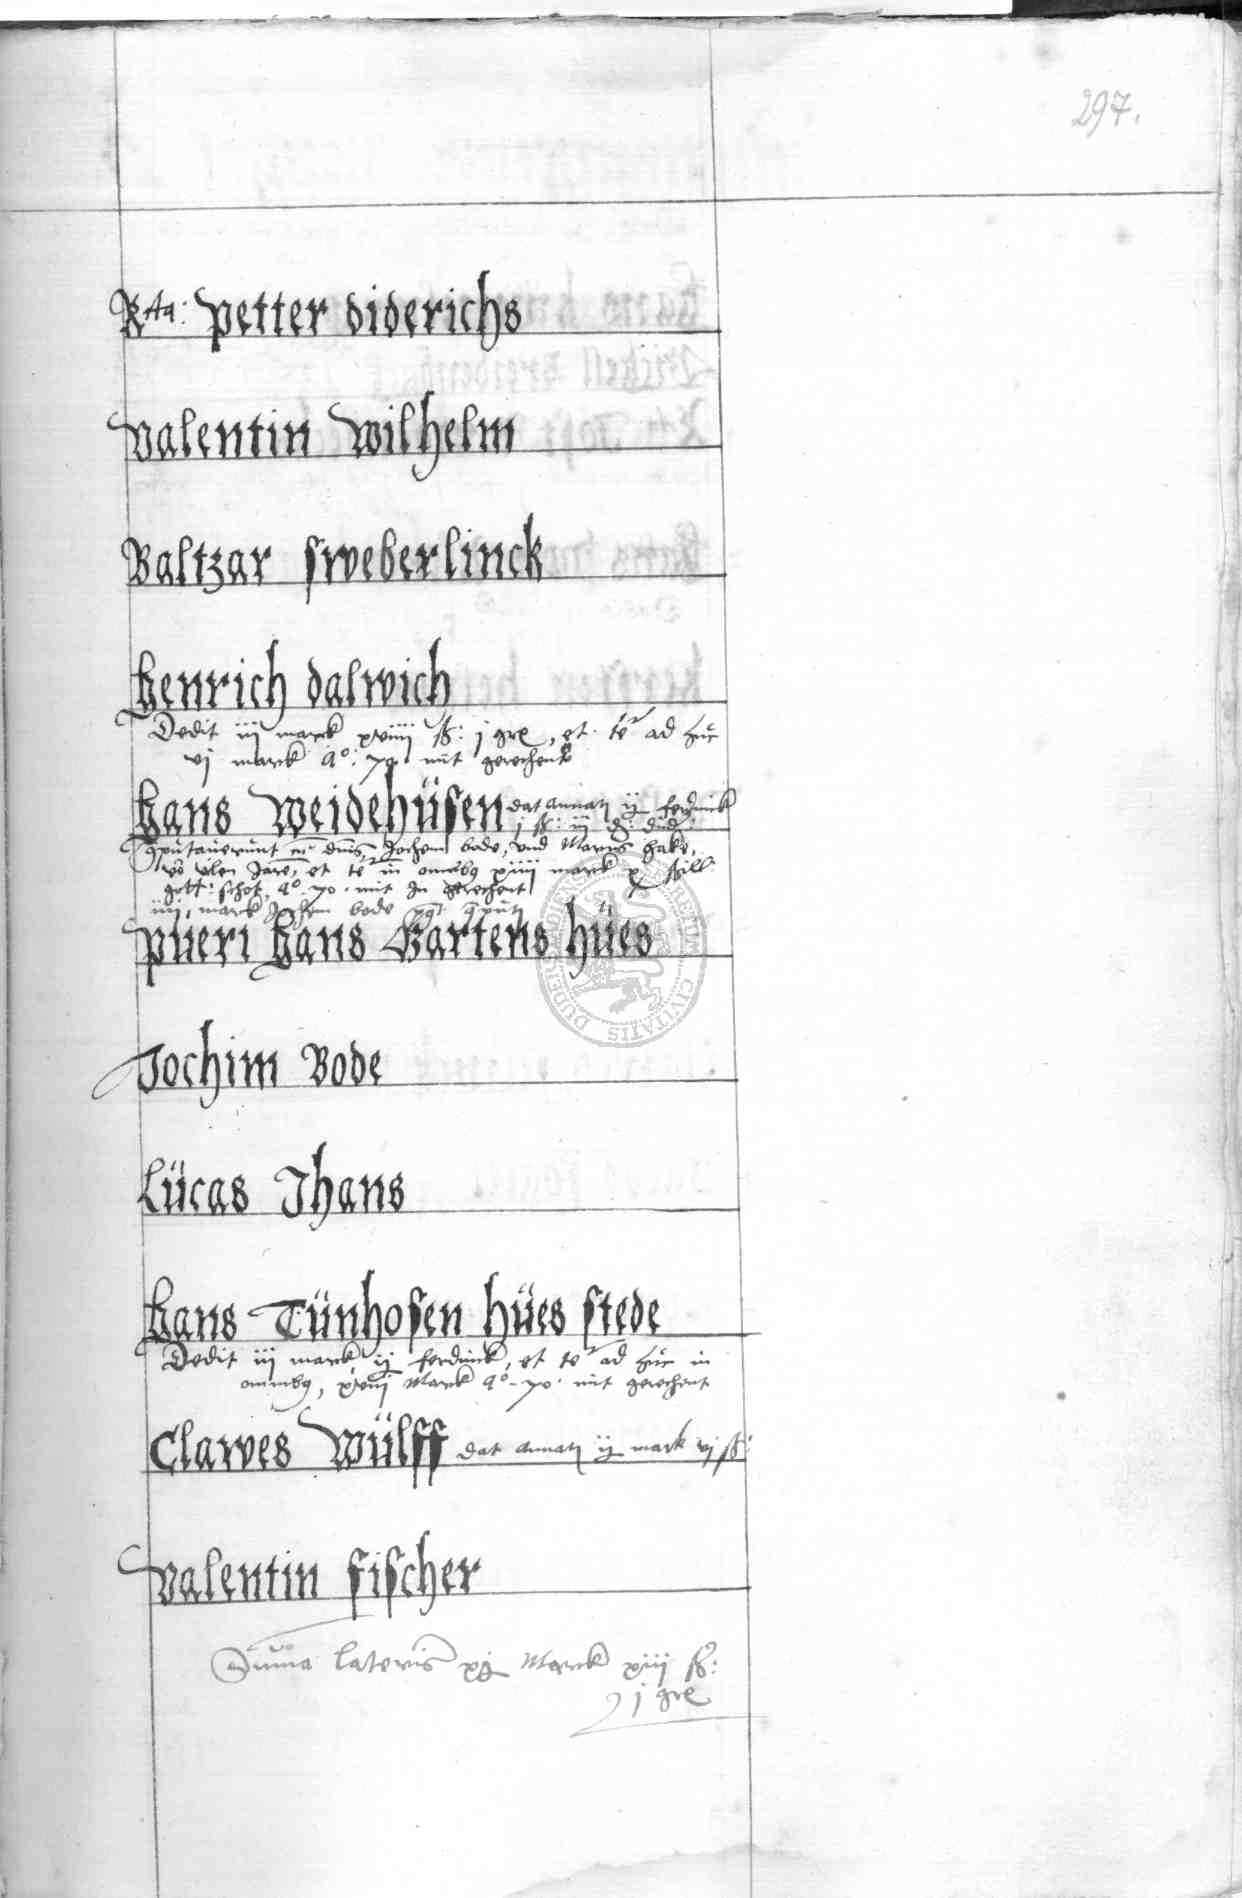 297.
Rta: Petter Diderichs
Valentin Wilhelm
Baltzar Sweberlinck
Henrich Dalwich
Dedit iij marck xviiij ß: j gre, et te ad huc
vj marck Ao: 70 mit gerechent
Hans Weidehüsen dat annati ij ferdinck
j ß: iij d:
putaverunt dnis Jochem bode, und Marcus hake,
vo allen Jare, et te in omnibq xiiij marck x ßill:
gott: schot, Ao. 70. mit In gerechent
iiij marck Jochem bode
Pueri Hans Bartens hües
Jochim Bode
Lücas Jhans
Hans Tünhosen hües stede
Dedit iij marck ij ferdinck, et te ad huc in
omnibq, xviij Marck Ao. 70. mit gerechent
Clawes Wülff dat annati ij mark vj ß:
Valentin Fischer
Suma lateris xj Marck xiij ß:
j gre
SECRETUM CIVITATIS DUDER